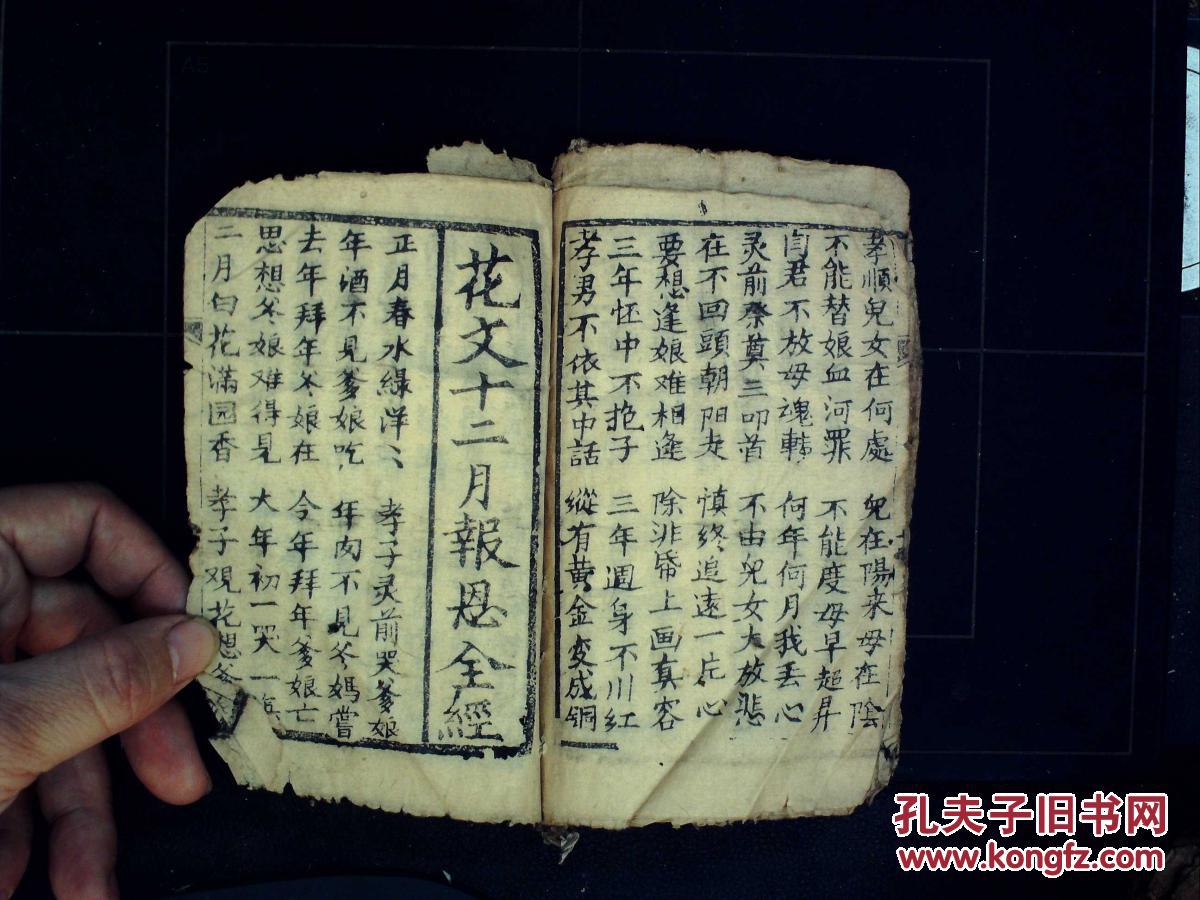 孝順兒女在何處 兒在陽來母在陰
不能替娘血河罪 不能度母早超昇
閆君不放母魂轉 何年何月我丢心
灵前祭奠三叩首 不由兒女大放悲
在不回頭朝阳走 慎終追遠一片心
要想逢娘难相逢 除非帋上画真容
三年怀中不抱子 三年週身不川紅
孝男不依其中話 縱有黄金变成铜
花文十二月報恩全經
正月春水綠洋〻 孝子灵前哭爹娘
年酒不見爹娘吃 年肉不見爷媽嘗
去年拜年爷娘在 今年拜年爹娘亡
思想爷娘难得見 大年初一哭一
二月白花滿园香 孝子观花想爹
A5
孔夫子旧书网
www.kongfz.com